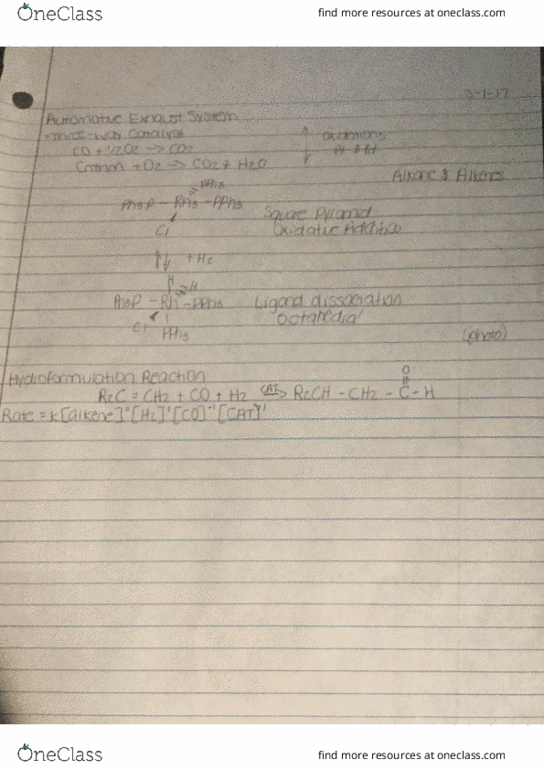 OneClass
find more resources at oneclass.com
3-1-17
Automotive Exhust System
-three-way Catalyst
CO + 1/2O2 → CO2
+ O2 → CO2 + H2O
Oxidations
Alkane & Alkenes
PPh3
Ph3P - Rh - PPh3
Cl
Square Pyramid
Oxidative Addition
+ H2
H
H
Ph3P - Rh - PPh3
Cl
PPh3
Ligand dissociation
Octahedral
(photo)
Hydroformulation Reaction
R2C = CH2 + CO + H2 CAT→ R2CH - CH2 - C - H
O
Rate = k[alkene]°[H2]'[CO]⁻'[CAT]'
OneClass
find more resources at oneclass.com